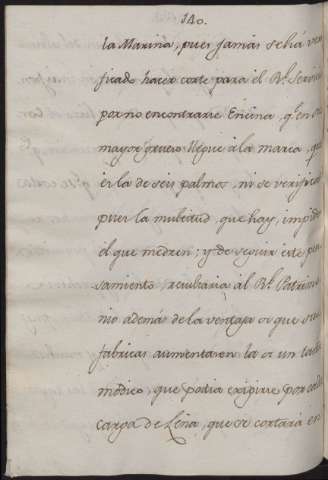 140.
la Marina, pues jamas se há veri
ficado hacer corte para el Rl. Servicio
por no encontrarse Encina, qe. en su
mayor grueso llegue à la marca, que
es la de seis palmos, ni se verificará
pues la multitud, que hay, impide
el que medren; y de seguir este pen
samiento, resultaria ál Rl. Patrimo
nio además de la ventaja de que sus
fabricas aumentasen la de un tanto
modico, que podia exigirse por cada
carga de Leña, que se cortará en